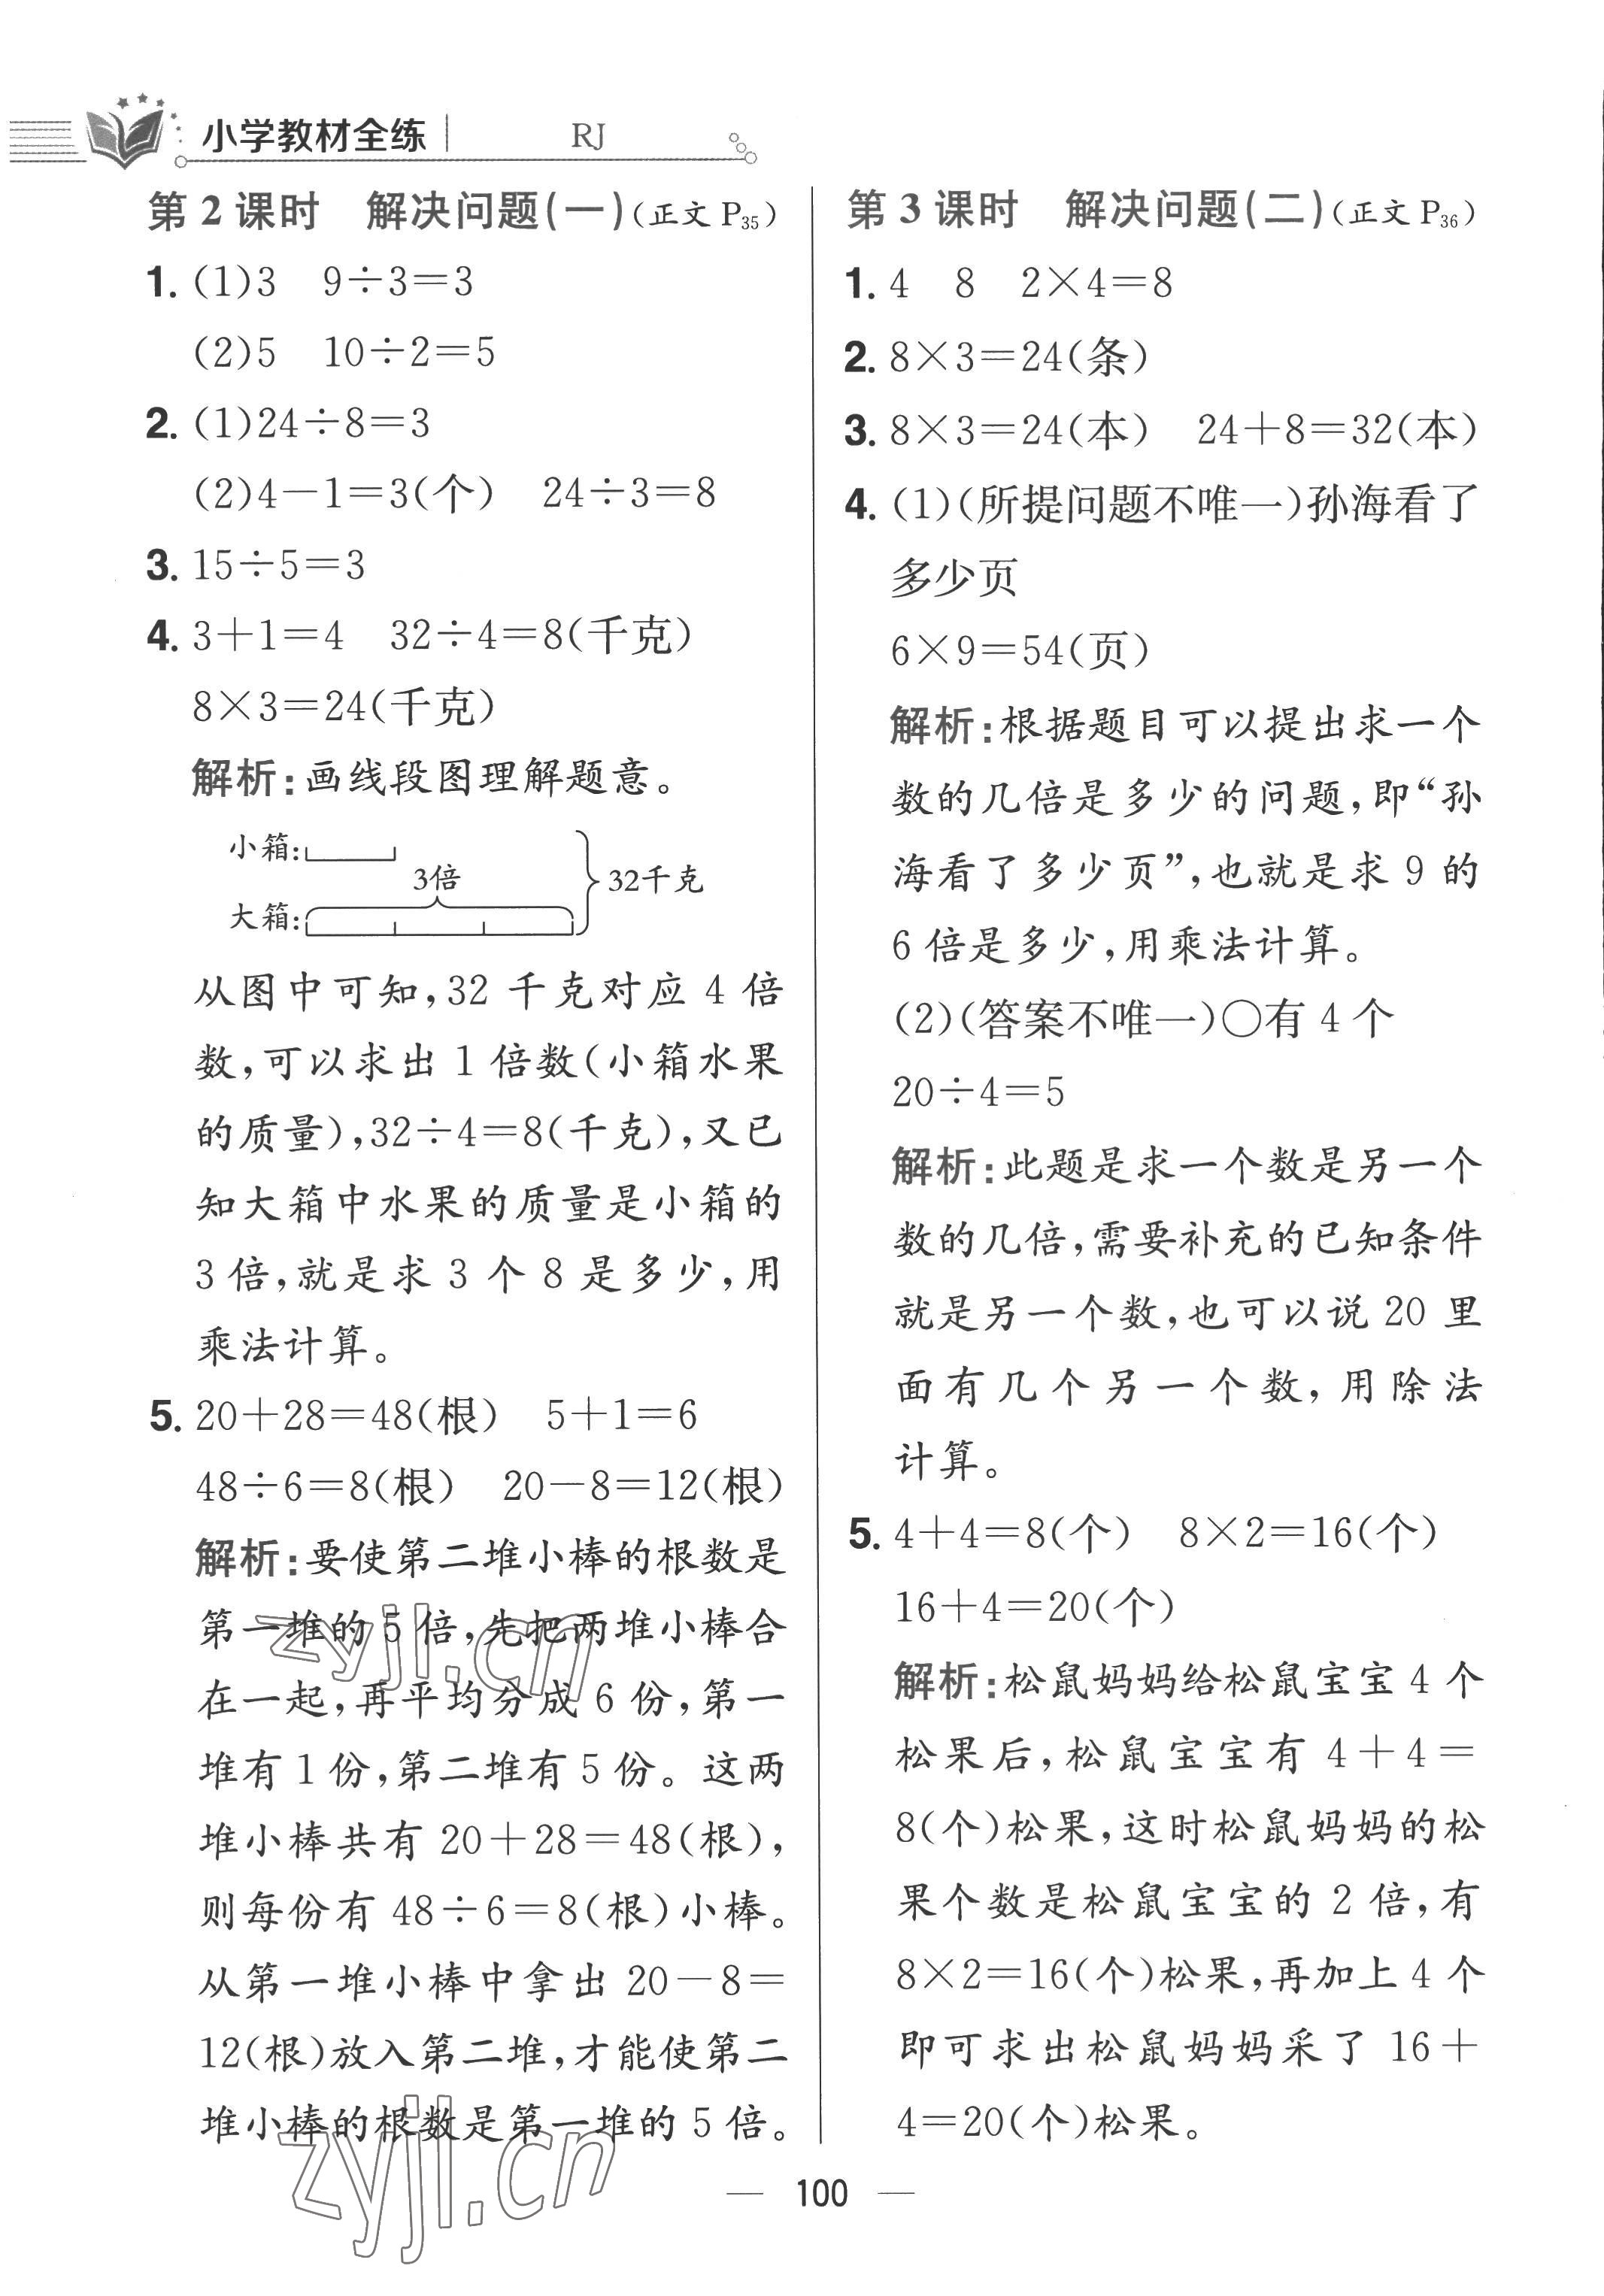 小学教材全练 RJ
第2课时 解决问题(一)(正文 P35)
1. (1)3 9÷3=3
(2)5 10÷2=5
2. (1)24÷8=3
(2)4－1=3(个) 24÷3=8
3. 15÷5=3
4. 3＋1=4 32÷4=8(千克)
8×3=24(千克)
解析:画线段图理解题意。
小箱:
3倍
32千克
大箱:
从图中可知,32 千克对应 4 倍
数,可以求出 1 倍数(小箱水果
的质量),32÷4=8(千克),又已
知大箱中水果的质量是小箱的
3 倍,就是求 3 个 8 是多少,用
乘法计算。
5. 20＋28=48(根) 5＋1=6
48÷6=8(根) 20－8=12(根)
解析:要使第二堆小棒的根数是
第一堆的 5 倍,先把两堆小棒合
在一起,再平均分成 6 份,第一
堆有 1 份,第二堆有 5 份。这两
堆小棒共有 20＋28=48(根),
则每份有 48÷6=8(根)小棒。
从第一堆小棒中拿出 20－8=
12(根)放入第二堆,才能使第二
堆小棒的根数是第一堆的 5 倍。
第3课时 解决问题(二)(正文 P36)
1. 4 8 2×4=8
2. 8×3=24(条)
3. 8×3=24(本) 24＋8=32(本)
4. (1)(所提问题不唯一)孙海看了
多少页
6×9=54(页)
解析:根据题目可以提出求一个
数的几倍是多少的问题,即“孙
海看了多少页”,也就是求 9 的
6 倍是多少,用乘法计算。
(2)(答案不唯一)○有 4 个
20÷4=5
解析:此题是求一个数是另一个
数的几倍,需要补充的已知条件
就是另一个数,也可以说 20 里
面有几个另一个数,用除法
计算。
5. 4＋4=8(个) 8×2=16(个)
16＋4=20(个)
解析:松鼠妈妈给松鼠宝宝 4 个
松果后,松鼠宝宝有 4＋4=
8(个)松果,这时松鼠妈妈的松
果个数是松鼠宝宝的 2 倍,有
8×2=16(个)松果,再加上 4 个
即可求出松鼠妈妈采了 16＋
4=20(个)松果。
zyjl.cn
zyjl.cn
— 100 —